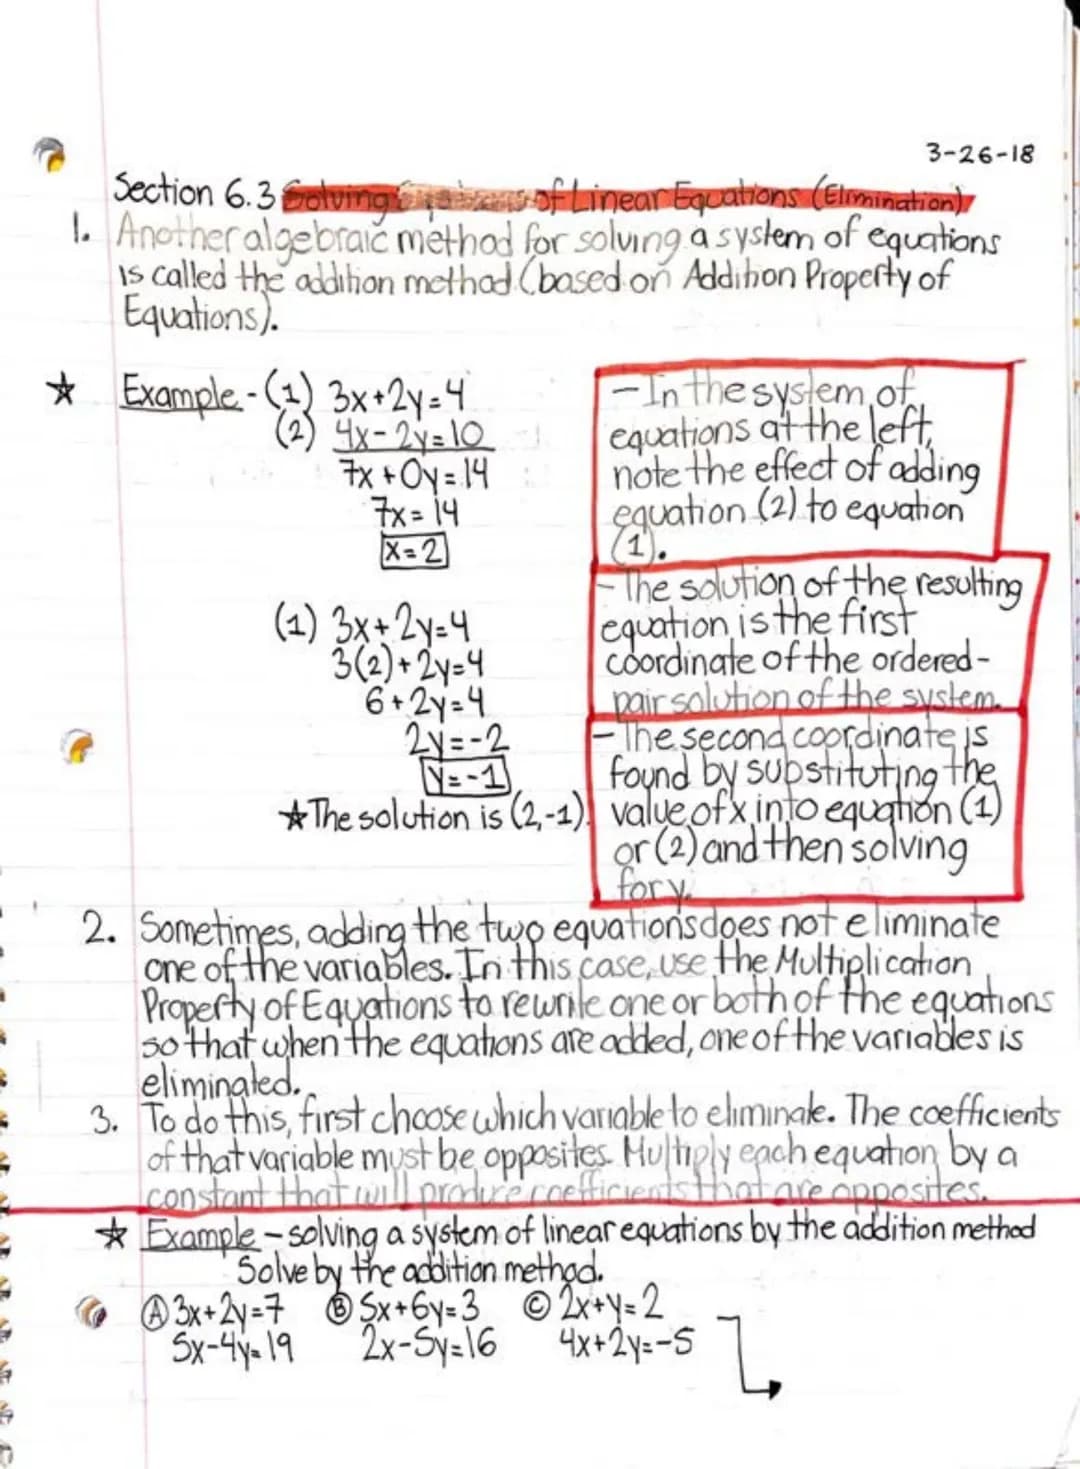 3-26-18
Section 6.3 Solving Systems of Linear Equations (Elimination)
1. Another algebraic method for solving a system of equations
is called the addition method (based on Addition Property of
Equations).
☆ Example - (1) 3x+2y=4
(2) 4x-2y=10
7x+0y=14
7x=14
x=2
- In the system of
equations at the left,
note the effect of adding
equation (2) to equation
(1).
(1) 3x+2y=4
3(2)+2y=4
6+2y=4
2y=-2
y=-1
☆ The solution is (2,-1).
- The solution of the resulting
equation is the first
coordinate of the ordered-
pair solution of the system.
- The second coordinate is
found by substituting the
value of x into equation (1)
or (2) and then solving
for y.
2. Sometimes, adding the two equations does not eliminate
one of the variables. In this case, use the Multiplication
Property of Equations to rewrite one or both of the equations
so that when the equations are added, one of the variables is
eliminated.
3. To do this, first choose which variable to eliminate. The coefficients
of that variable must be opposites. Multiply each equation by a
constant that will produce coefficients that are opposites.
☆ Example - solving a system of linear equations by the addition method
Solve by the addition method.
Ⓐ 3x+2y=7 Ⓑ 5x+6y=3 Ⓒ 2x+y=2
5x-4y=19 2x-5y=16 4x+2y=-5